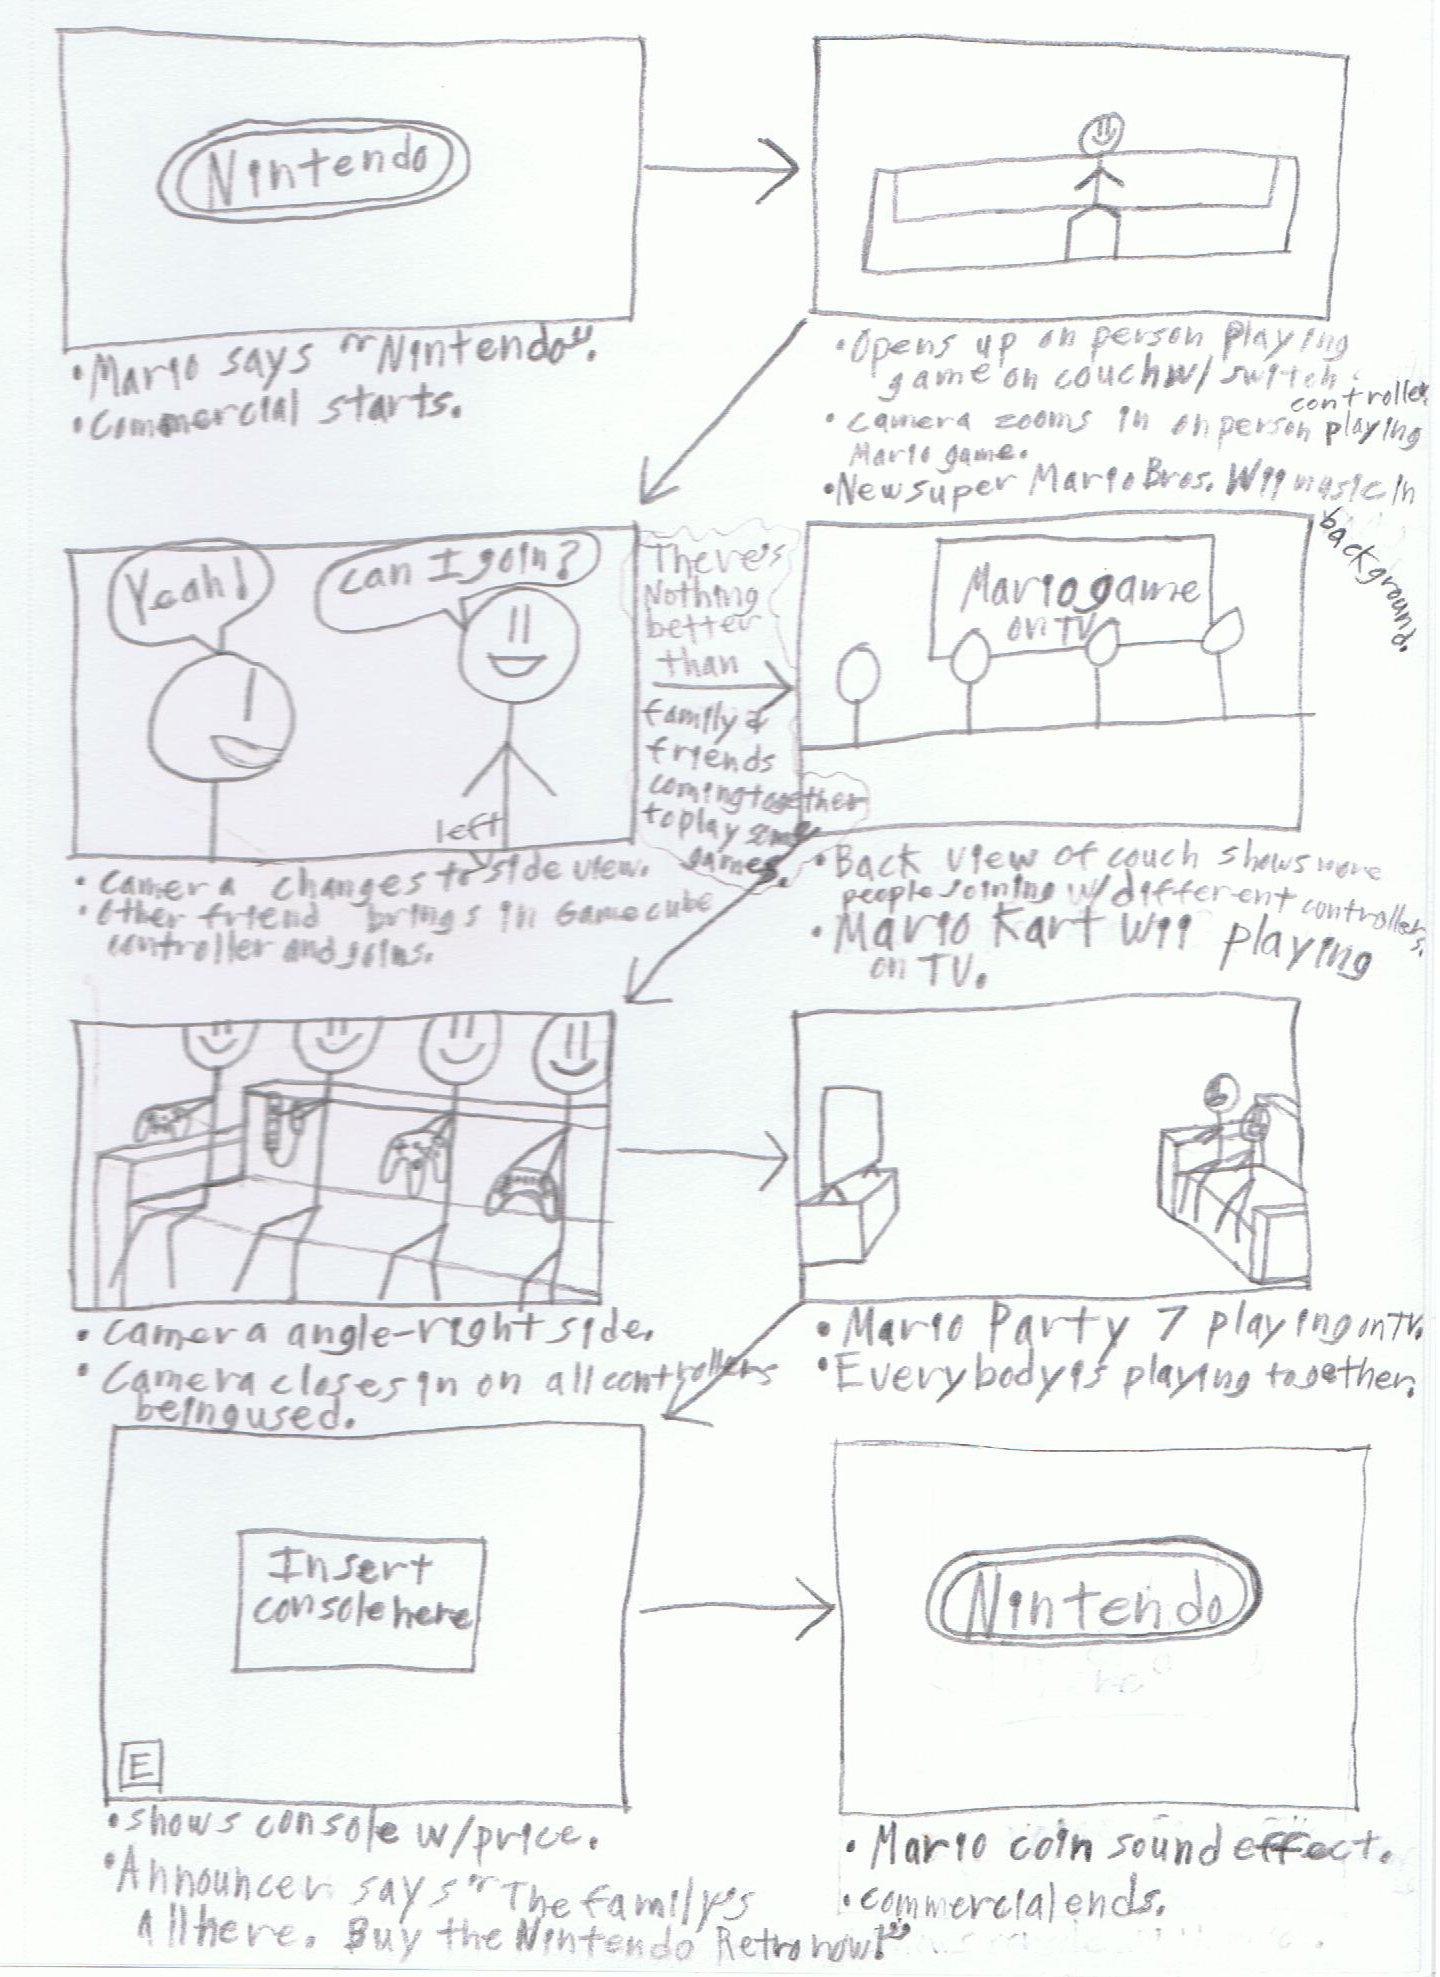 Nintendo
•Mario says "Nintendo".
•Commercial starts.
•Opens up on person playing
game on couch w/ switch
controller.
•camera zooms in on person playing
Mario game.
•New super Mario Bros. Wii music in
background.
Yeah!
can I join?
left
•camera changes to side view.
•other friend brings in Gamecube
controller and joins.
There's
Nothing
better
than
family &
friends
coming together
to play some
games.
Mario game
on TV
•Back view of couch shows more
people joining w/ different controllers.
•Mario Kart Wii playing
on TV.
•camera angle-right side.
•Camera closes in on all controllers
being used.
•Mario Party 7 playing on TV.
•Everybody is playing together.
Insert
console here
E
•shows console w/price.
•Announcer says "The family's
all here. Buy the Nintendo Retro now!"
Nintendo
•Mario coin sound effect.
•commercial ends.